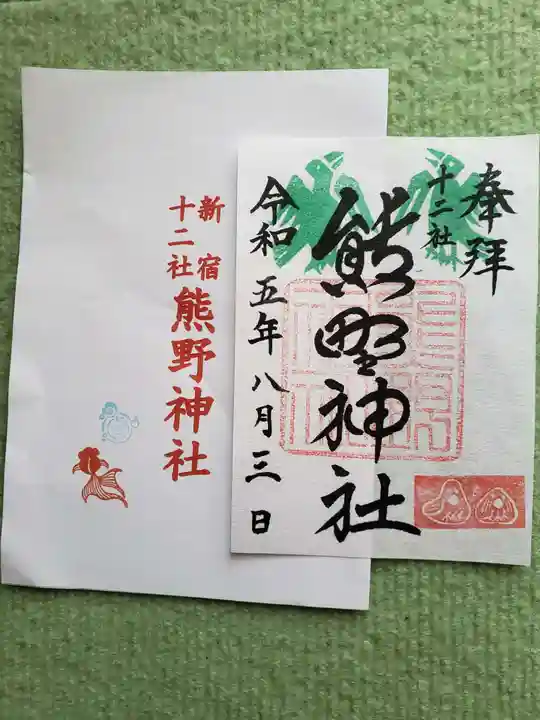 新宿
十二社
熊野神社
奉拝
十二社
熊野神社
令和五年八月三日